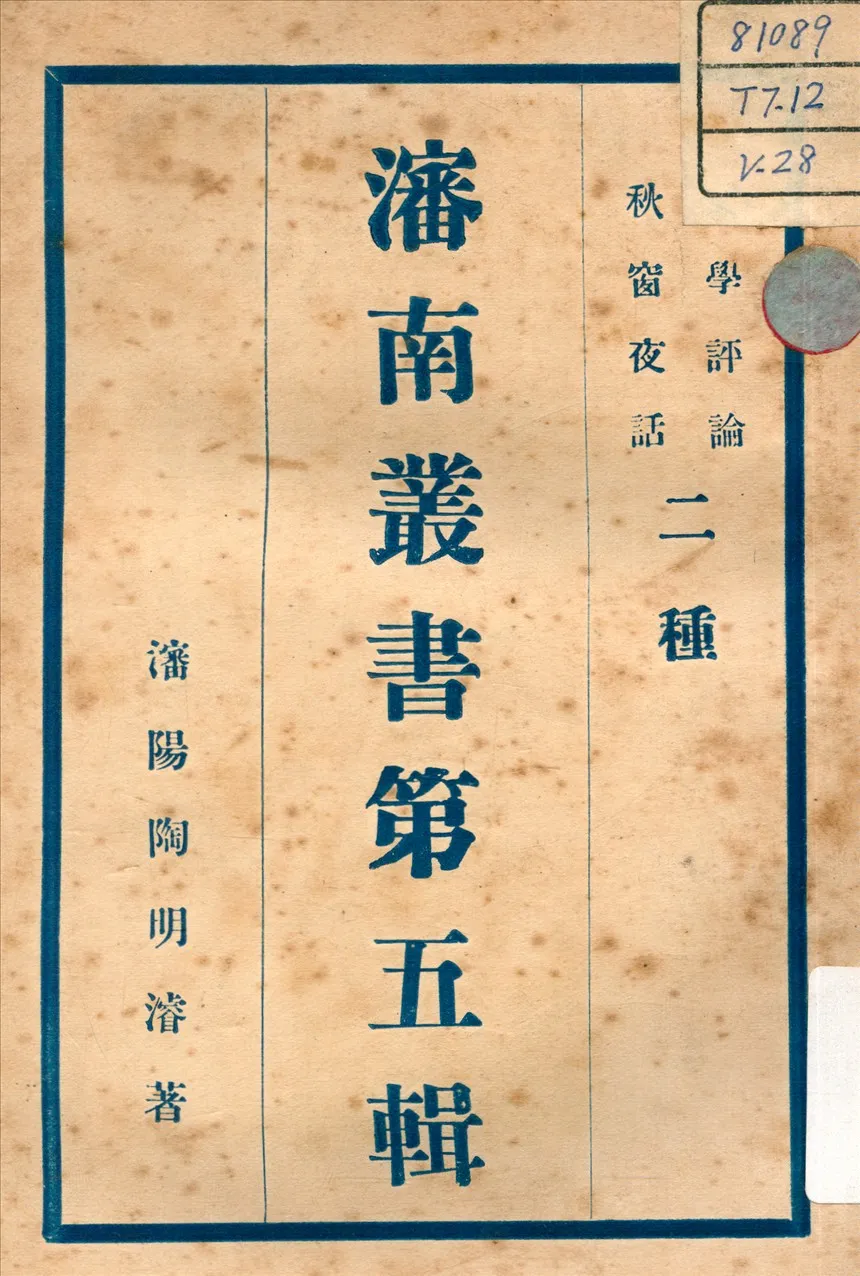 學評論
秋窗夜話
二種
瀋南叢書第五輯
瀋陽陶明濬著
81089
T7.12
V.28